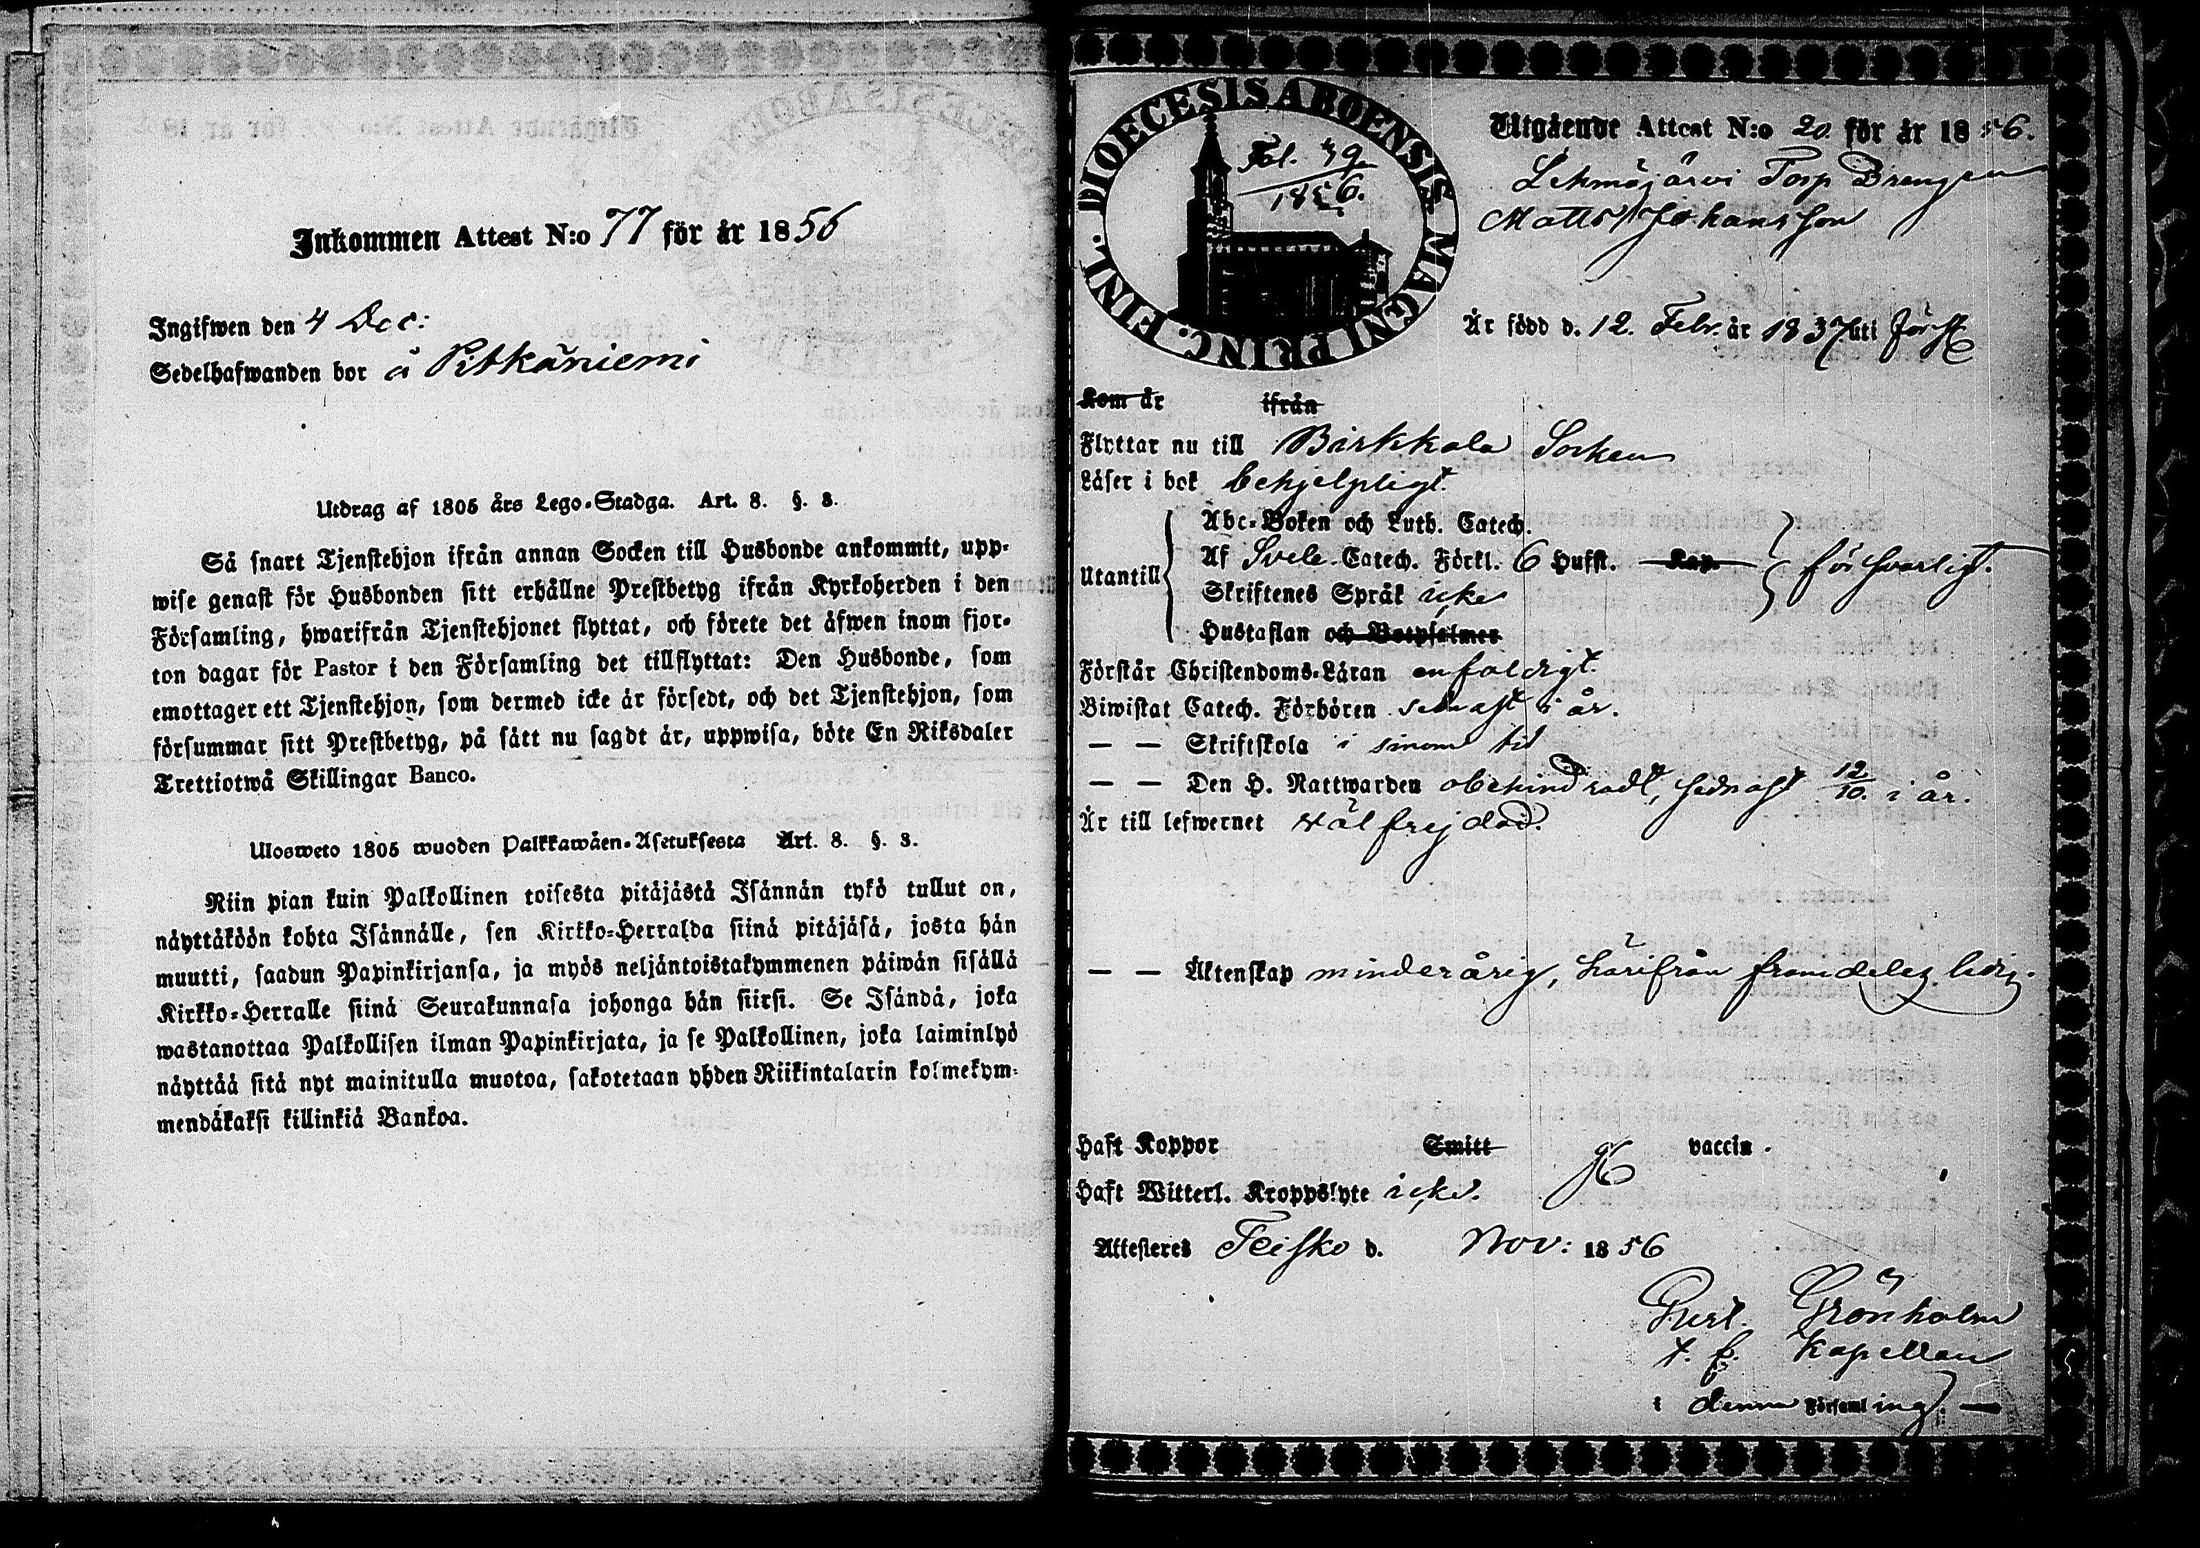 Inkommen Attest N:o 77 för år 1856
Ingifwen den 4 Dec:
Sedelhafwanden bor å Pitkäniemi
Utdrag af 1805 års Lego-Stadga. Art. 8. §. 3.
Så snart Tjenstehjon ifrån annan Socken till Husbonde ankommit, upp-
wise genast för Husbonden sitt erhållne Prestbetyg ifrån Kyrkoherden i den
Församling, hwarifrån Tjenstehjonet flyttat, och förete det äfwen inom fjor-
ton dagar för Pastor i den Församling det tillflyttat: Den Husbonde, som
emottager ett Tjenstehjon, som dermed icke är försedt, och det Tjenstehjon, som
försummar sitt Prestbetyg, på sätt nu sagdt är, uppwisa, böte En Riksdaler
Trettiotwå Skillingar Banco.
Ulosweto 1805 wuoden Palkkawäen-Asetuksesta Art. 8. §. 3.
Niin pian kuin Palkollinen toisesta pitäjästä Isännän tykö tullut on,
näyttäköön kohta Isännälle, sen Kirkko-Herralda siinä pitäjäsä, josta hän
muutti, saadun Papinkirjansa, ja myös neljäntoistakymmenen päiwän sisällä
Kirkko-Herralle siinä Seurakunnasa johonga hän siirsi. Se Isändä, joka
wastanottaa Palkollisen ilman Papinkirjata, ja se Palkollinen, joka laiminlyö
näyttää sitä nyt mainitulla muotoa, sakotetaan yhden Riikintalarin kolmekym-
mendäkaksi killinkiä Bankoa.
DIOECESIS ABOENSIS. MAGNI PRINC. FINL.
Fol. 49
1856.
Utgående Attest N:o 20. för år 1856.
Lehmäjärvi Torp Drengen
Matts Johansson
Är född d. 12. Febr. år 1837 uti förs.
Kom år ifrån
Flyttar nu till Birkkala Socken
Läser i bok behjelpligt.
Utantill
Abc-Boken och Luth. Catech.
Af Svebe. Catech. Förkl. 6 Hufst. Kap.
Skriftenes Språk icke
Hustaflan och Botpsalmer
försvarligt.
Förstår Christendoms-Läran enfaldigt.
Biwistat Catech. Förhören sednast i år.
— — Skriftskola i sinom tid
— — Den H. Nattwarden obehindradt, sednast 12/10. i år.
Är till lefwernet välfrejdad.
— — Äktenskap minderårig, härifrån framdeles ledig.
Haft Koppor Smitt vaccin.
Haft Witterl. Kroppslyte icke.
Attesteres Teisko d. Nov: 1856
Gust. Grönholm
t. f. Kapellan
i denna Församling. —